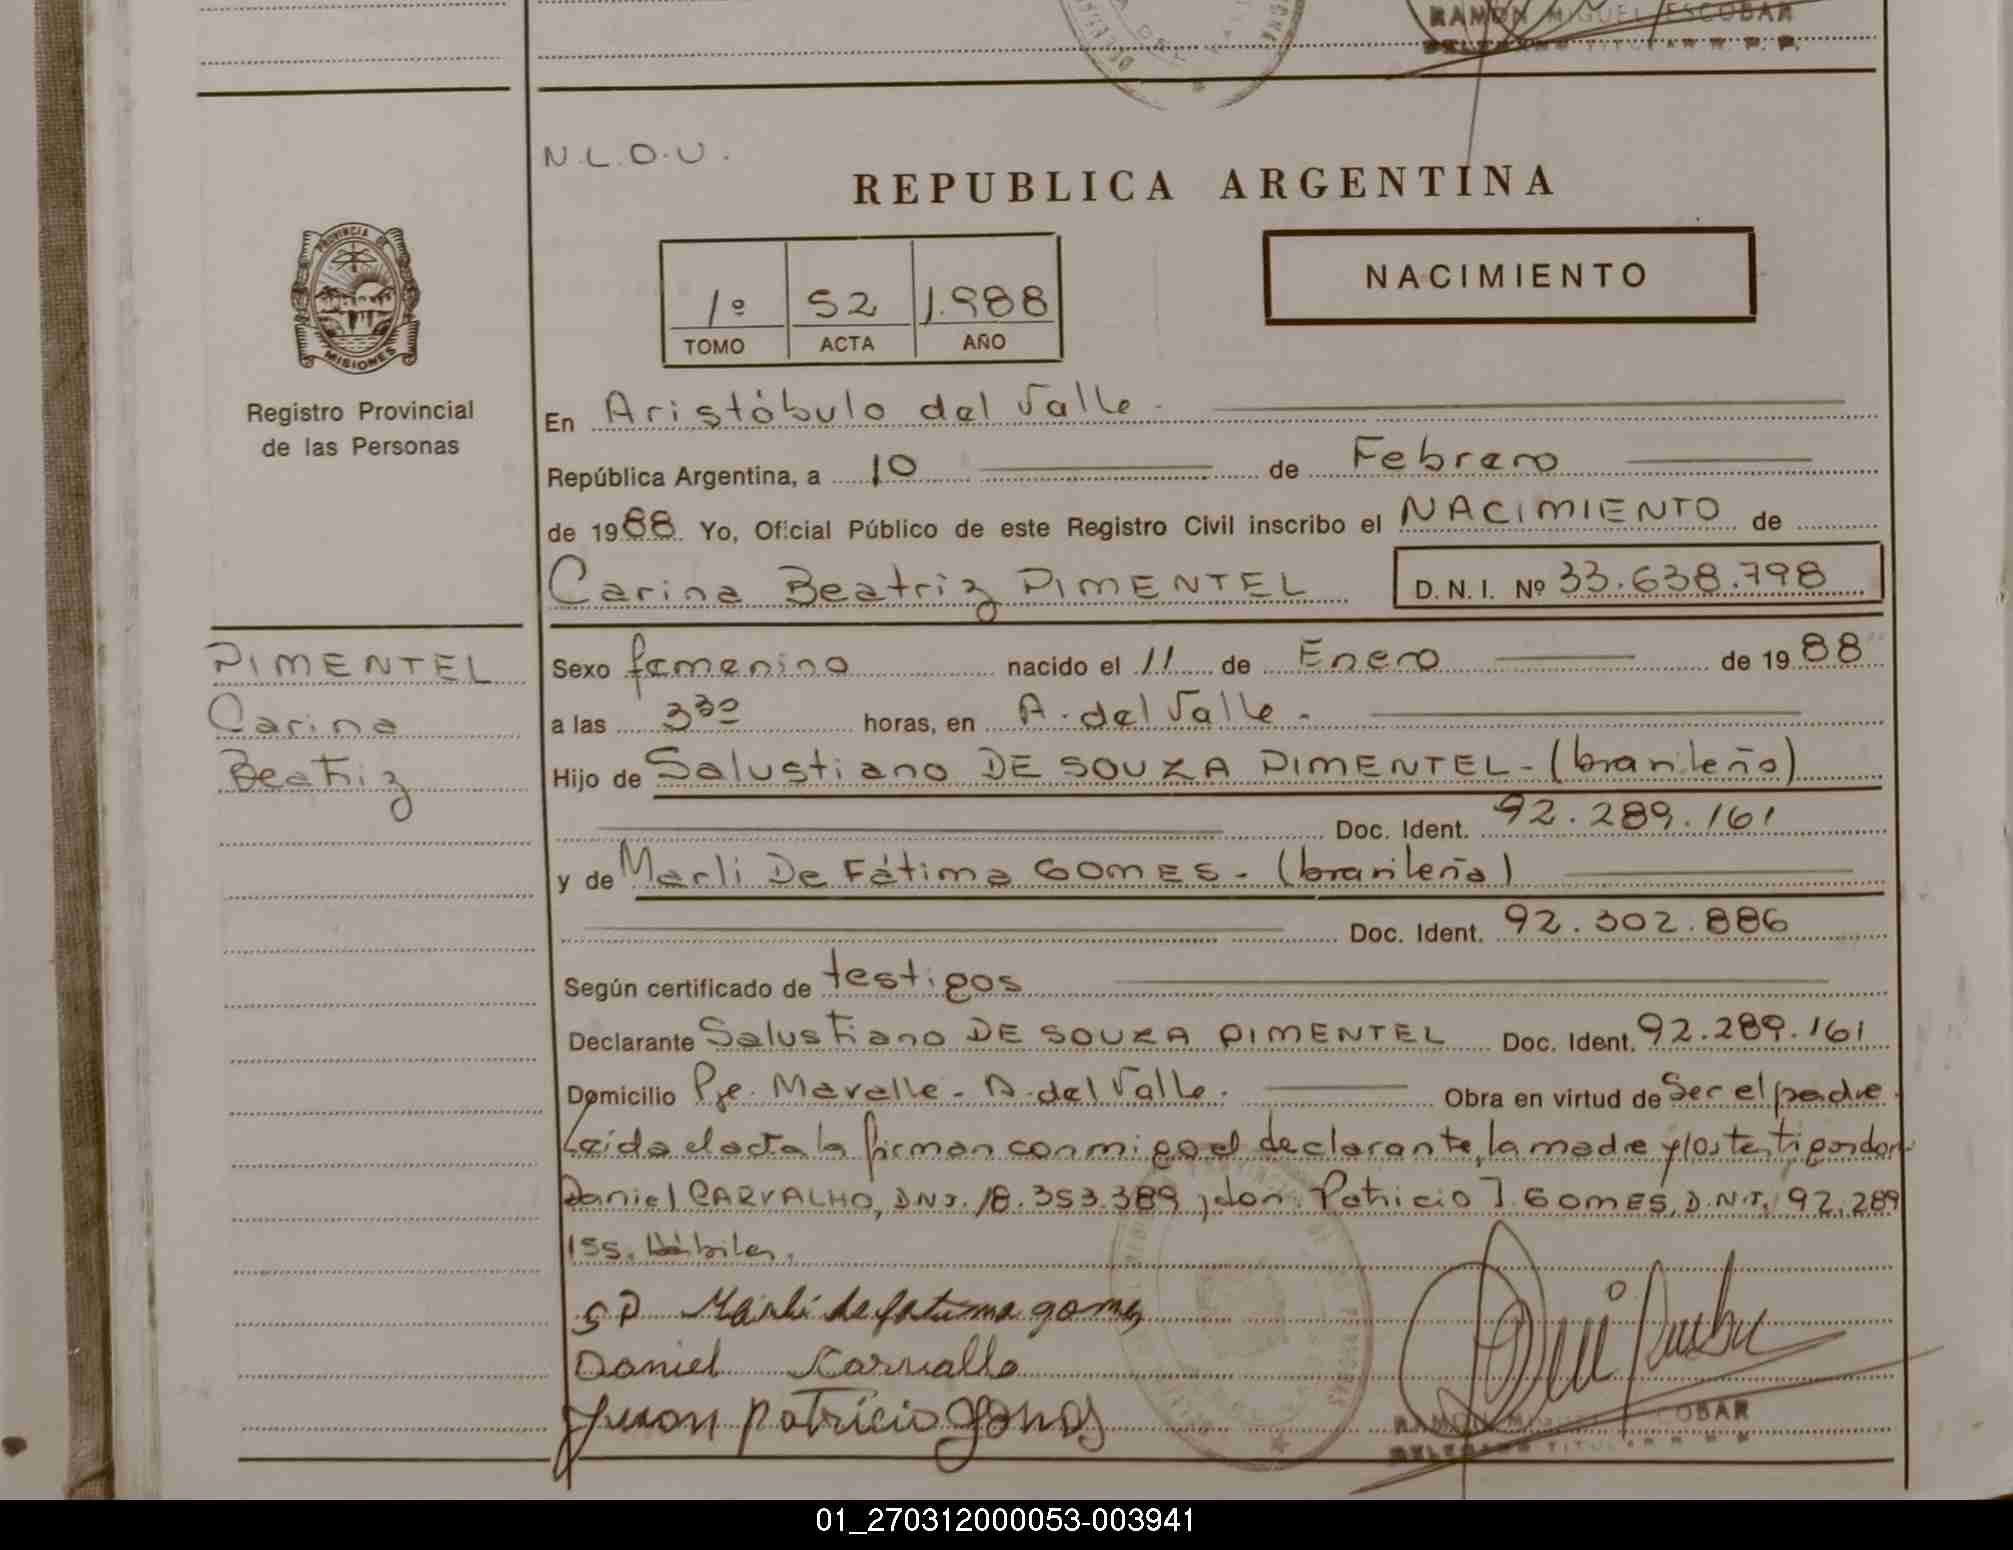 RAMON MIGUEL ESCOBAR
N.L.O.U.
REPUBLICA ARGENTINA
PROVINCIA DE
MISIONES
Registro Provincial
de las Personas
1º 52 1.988
TOMO ACTA AÑO
NACIMIENTO
En Aristóbulo del Valle.
República Argentina, a 10 de Febrero
de 1988 Yo, Oficial Público de este Registro Civil inscribo el NACIMIENTO de
Carina Beatriz PIMENTEL D.N.I. Nº 33.638.798
PIMENTEL
Carina
Beatriz
Sexo femenino nacido el 11 de Enero de 1988
a las 3 30 horas, en A. del Valle.
Hijo de Salustiano DE SOUZA PIMENTEL - (brasileño)
Doc. Ident. 92.289.161
y de Marli De Fátima GOMES. (brasileña)
Doc. Ident. 92.302.886
Según certificado de testigos
Declarante Salustiano DE SOUZA PIMENTEL Doc. Ident. 92.289.161
Domicilio Pje. Mavalle - A. del Valle. Obra en virtud de Ser el padre.
Leída el acta la firman conmigo el declarante, la madre y los testigos don
Daniel CARVALHO, D.N.I. 18.353.389, don Patricio J. GOMES, D.N.I. 92.289
155. Hábiles.
S P Marli de fatima gomes
Daniel Carvallo
Juan Patricio gomes
RAMON MIGUEL ESCOBAR
01_270312000053-003941